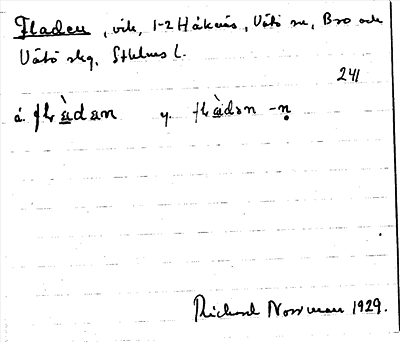 Fladen, vik, 1-2 Håknäs, Vätö sn, Bro och
Vätö skg, Sthlms l.
241
ä. flàdan y. flàdən -n̥
Richard Norrman 1929.